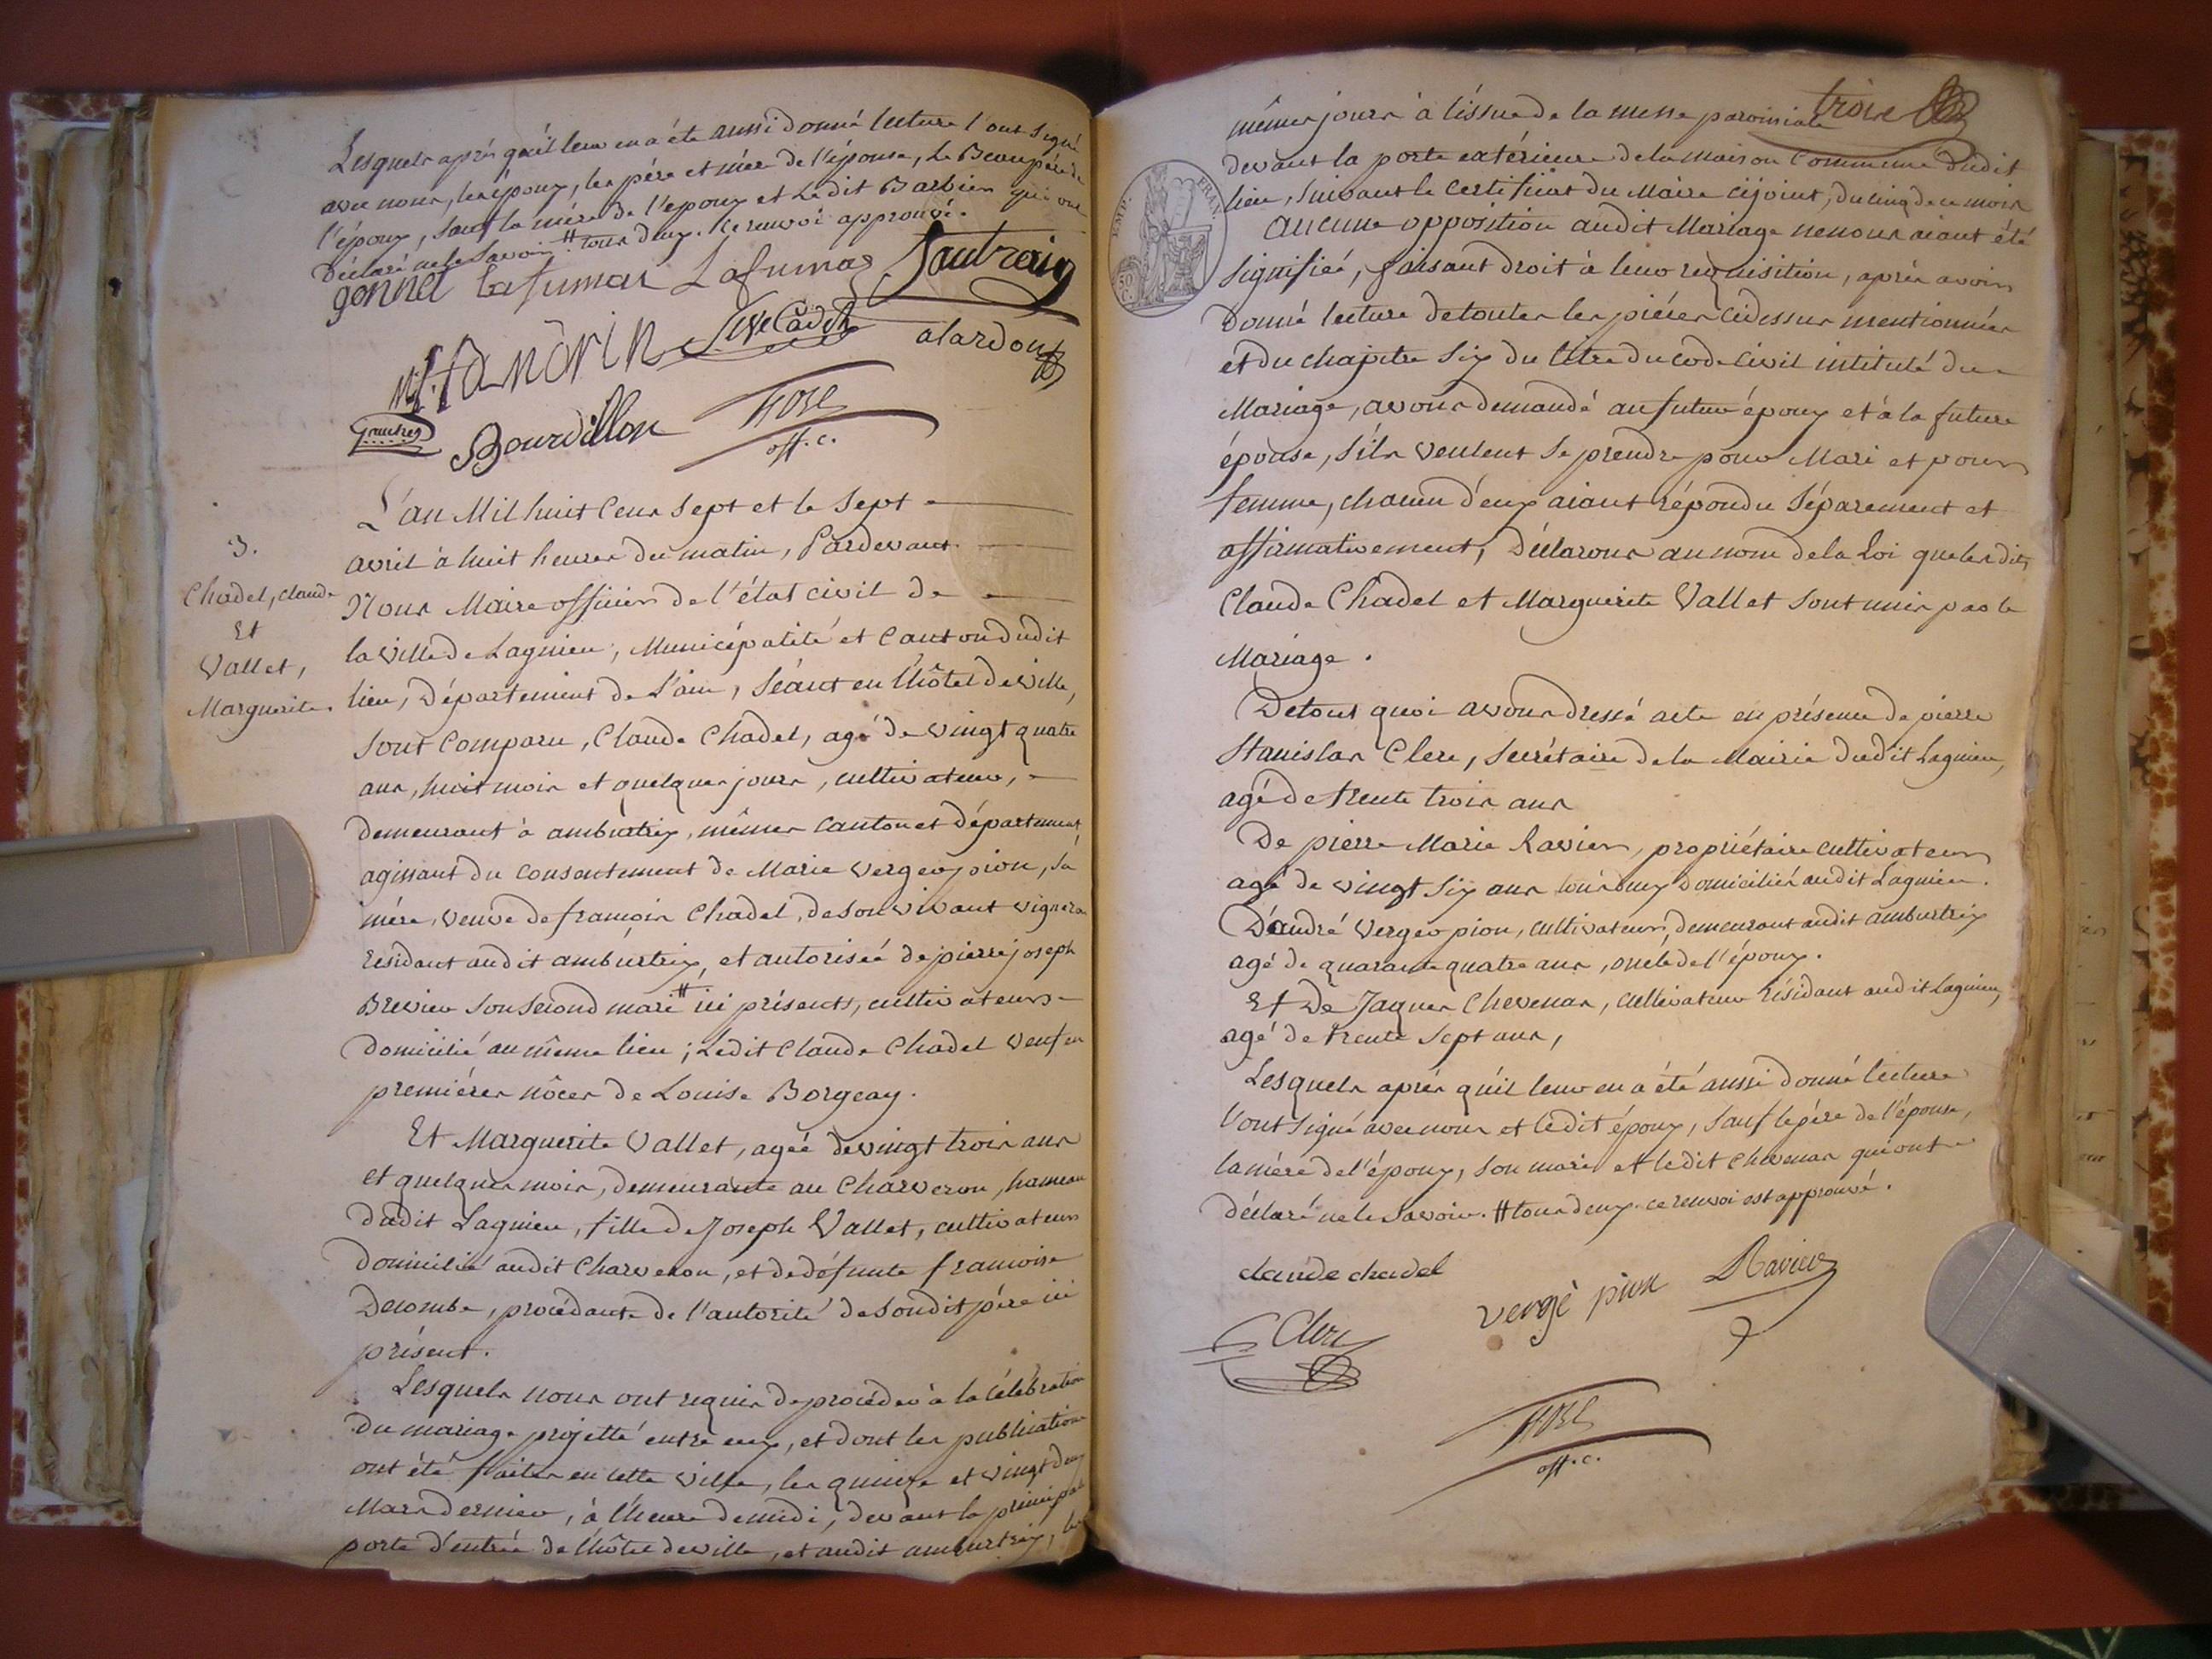 Lesquels après qu'il leur en a été aussi donné lecture l'ont signé
avec nous, les époux, les père et mère de l'épouse, le Beaupère de
l'époux, sauf la mère de l'époux et Ledit Barbier qui ont
Déclaré ne le savoir # tous deux. ce renvoi approuvé.
gonnet Lafumas Lafumas Sautrain
Sivecadet alardon
Bourdillon off. c.
L'an Mil huit Cens sept et le sept
avril à huit heures du matin, Pardevant
3.
Chadel, claude
Et
Vallet,
Marguerite.
Nous Maire officier de l'état civil de
la ville de Lagnieu, Municipalité et Canton dudit
lieu, Département de L'ain, séant en l'hôtel de ville,
sont Comparu, Claude Chadel, agé de vingt quatre
ans, huit mois et quelques jours, cultivateur,
demeurant à ambutrix, mêmes canton et département
agissant du consentement de Marie vergeopion, sa
mère, veuve de françois Chadel, de son vivant vigneron
résidant audit amburtrix, et autorisée de pierre joseph
Brevieu son second mari # ici présents, cultivateurs
domicilié au même lieu ; Ledit Claude Chadel Veuf en
premiéres nôces de Louise Borgeay.
Et Marguerite Vallet, agéé de vingt trois ans
et quelques mois, demeurante au Charveron, hameau
dudit Lagnieu, fille de Joseph Vallet, cultivateur
domicilié audit Charveron, et de défunte françoise
Decombe, procédante de l'autorité de son dit père ici
présent.
Lesquels nous ont requis de procéder à la célébration
du mariage projetté entre eux, et dont les publications
ont été faites en cette ville, les quinze et vingt deux
Mars dernier, à l'heure de midi, devant la principale
porte d'entrée de l'hôtel de ville, et audit amburtrix, les
troise
mêmes jours à l'issue de la messe paroissiale
devant la porte extérieure de la maison Commune dudit
EMP. FRAN.
50 C.
lieu, suivant le certificat du Maire cijoint, du cinq de ce mois
aucune opposition audit Mariage ne nous aiant été
signifiéé, faisant droit à leur requisition, après avoir
Donné lecture de toutes les piéces cidessus mentionnées
et du chapitre six du titre du code civil intitulé du
Mariage, avons demandé au futur époux et à la future
épouse, s'ils veulent se prendre pour Mari et pour
femme, chacun d'eux aiant répondu séparement et
affirmativement, Déclarons au nom de la Loi que lesdits
Claude Chadel et Marguerite Vallet sont unis par le
Mariage.
De tout quoi avons dressé acte en présence de pierre
Stanislas Clerc, secrétaire de la Mairie dudit Lagnieu,
agé de trente trois ans
De pierre Marie Ravier, propriétaire cultivateur
agé de vingt six ans tous deux domiciliés audit Lagnieu.
D'andré Vergeopion, cultivateur, demeurant audit amburtrix
agé de quarante quatre ans, oncle de l'époux.
Et De Jaques Chevenas, cultivateur résidant audit Lagnieu,
agé de trente sept ans,
Lesquels après qu'il leur en a été aussi donné lecture
l'ont signé avec nous et ledit époux, sauf le père de l'épouse,
la mère de l'époux, son mari et ledit Chevenas qui ont
déclaré ne le savoir. # tous deux ce renvoi est approuvé.
claude chadel
vergè pion Ravier
Clerc
off. c.